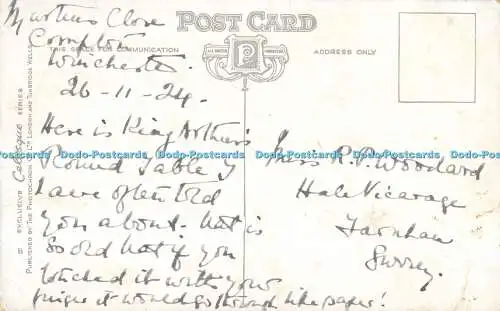 Martins Close
Compton
Winchester.
26-11-24.
Here is King Arthur's
Round Table I
have often told
you about. but is
so old that if you
touched it with your
finger it would go through like paper!
POST CARD
THIS SPACE FOR COMMUNICATION
ADDRESS ONLY
Miss R. P. Woodard
Hale Vicarage
Farnham
Surrey.
EXCLUSIVE Celesque SERIES
PUBLISHED BY THE PHOTOCHROM CO. LTD LONDON AND TUNBRIDGE WELLS
Dodo-Postcards Dodo-Postcards Dodo-Postcards Dodo-Postcards Dodo-Postcards Dodo-Postcards